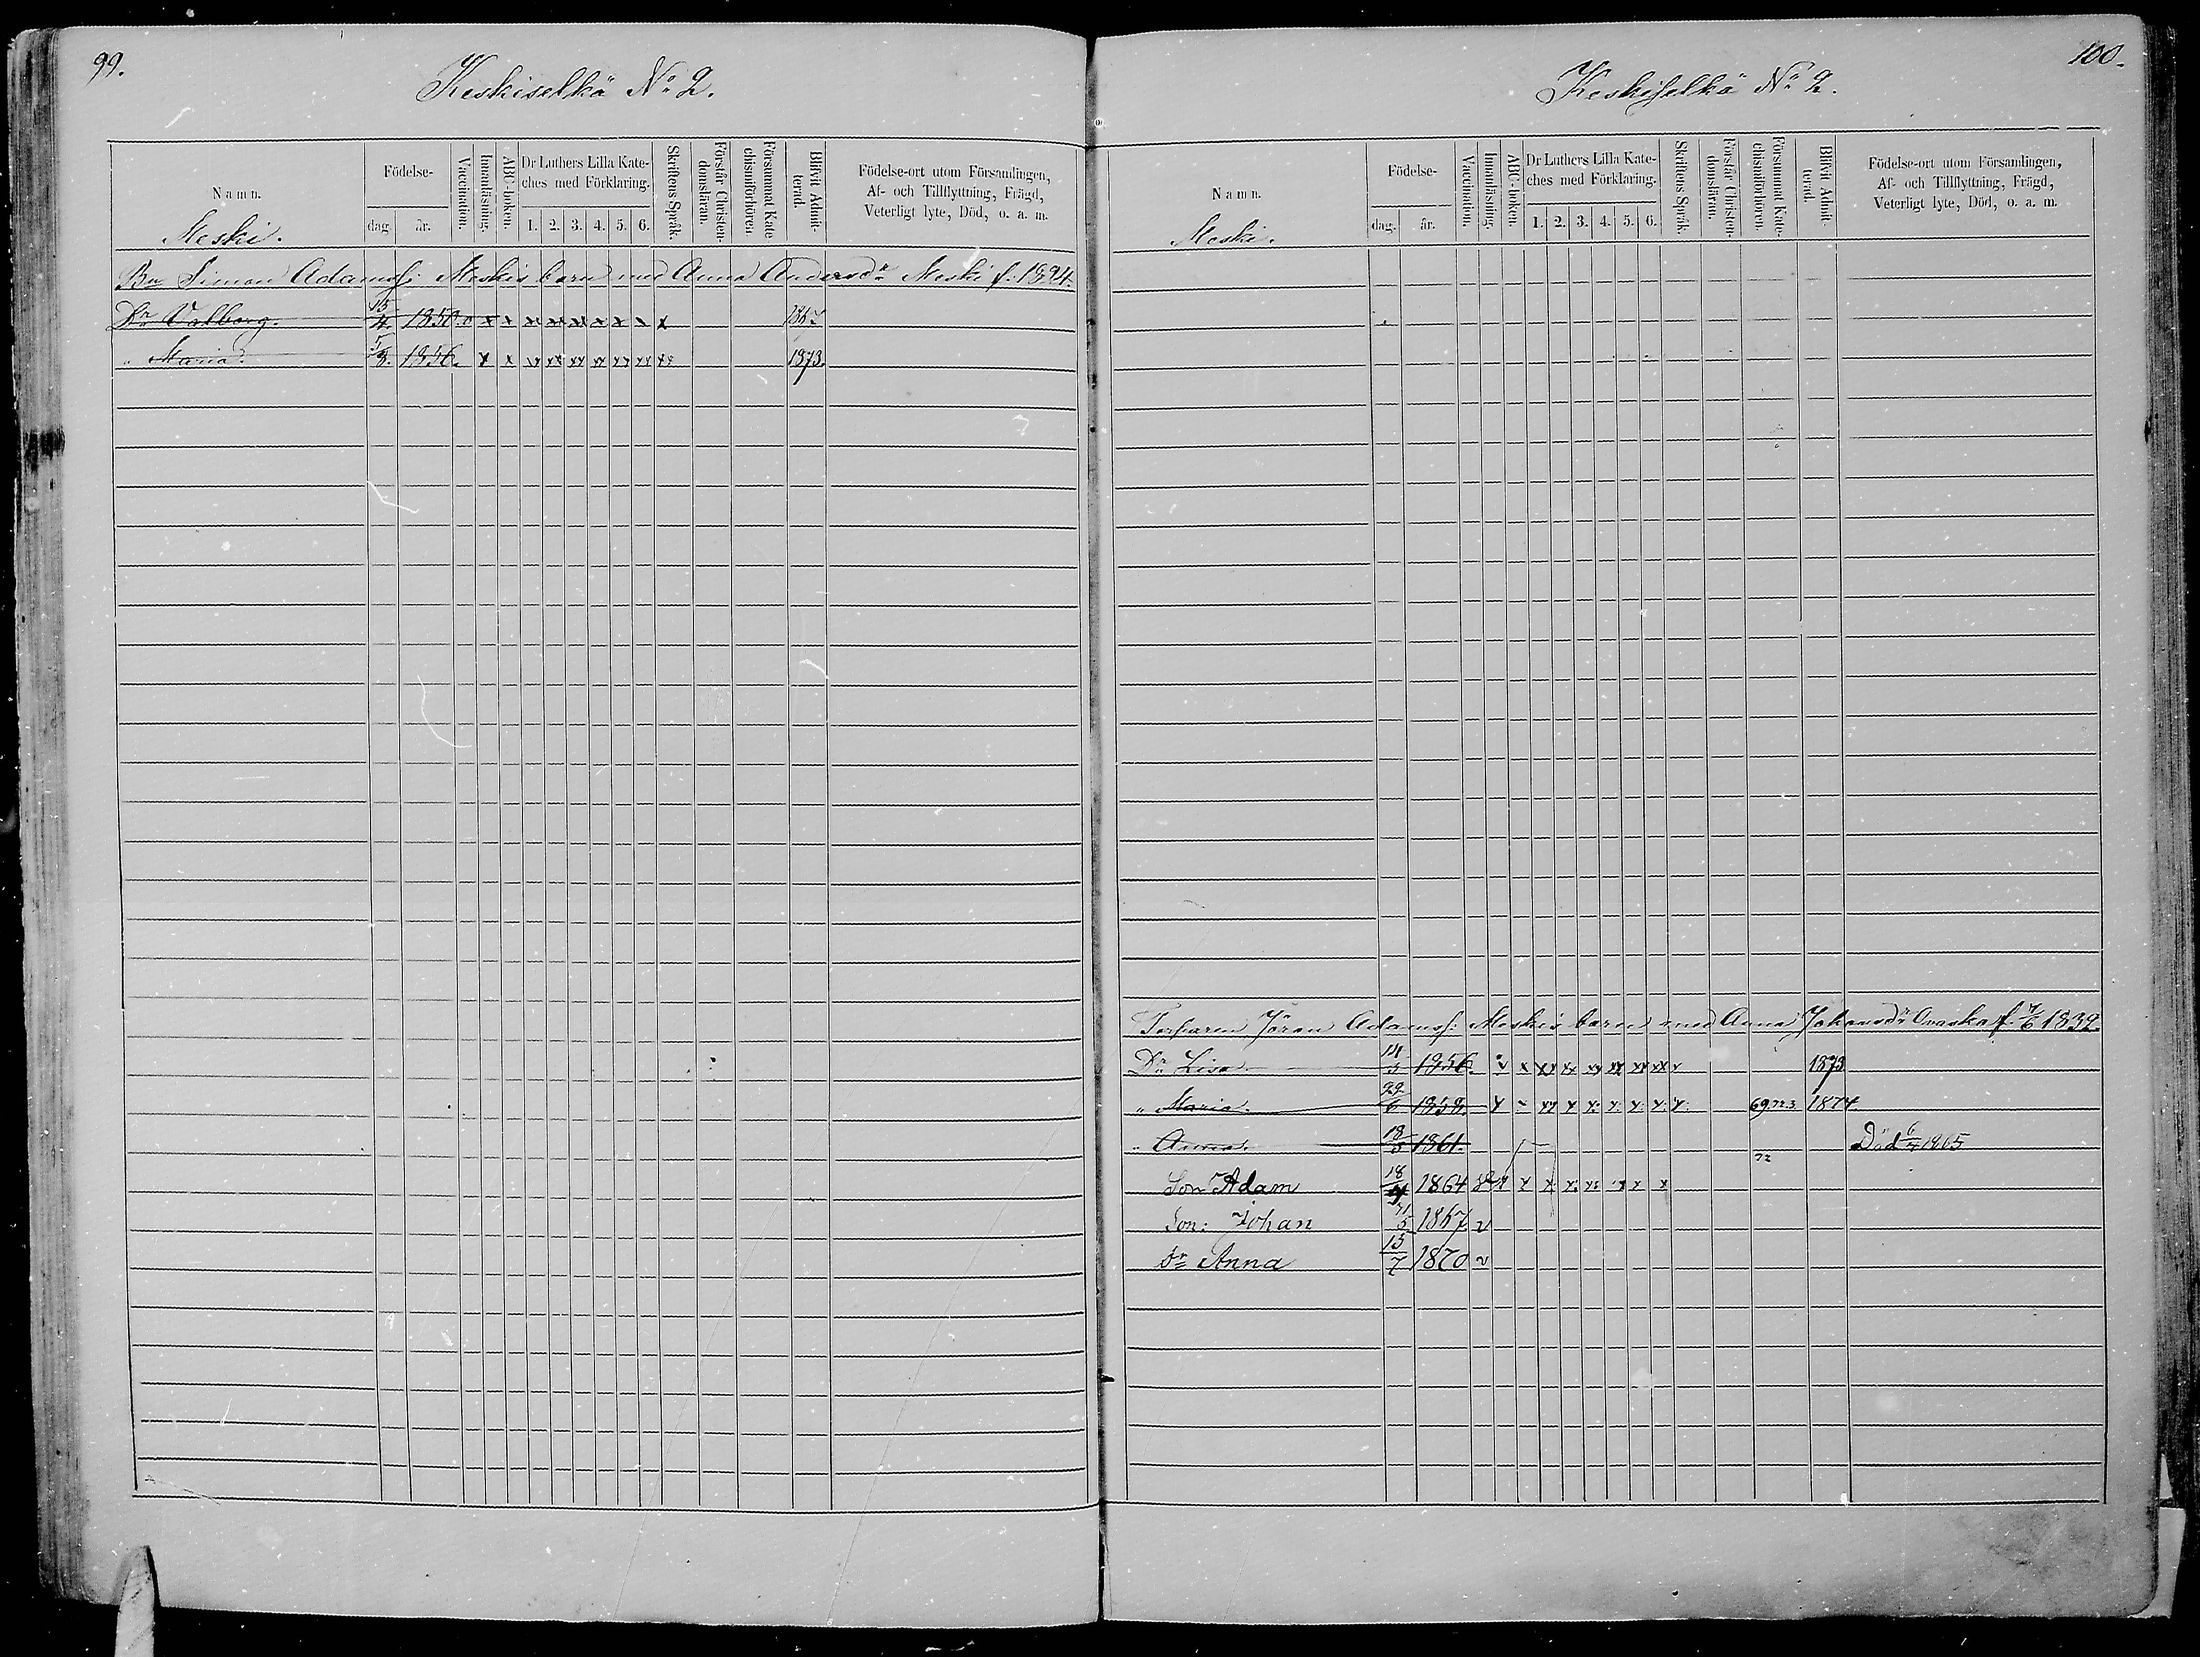 99.
Keskiselkä No 2.
Namn.
Födelse-
dag
år.
Vaccination.
Innanläsning.
ABC-Boken.
Dr Luthers Lilla Kate-
ches med Förklaring.
1. 2. 3. 4. 5. 6.
Skriftens Språk.
Förstår Christen-
domsläran.
Försummat Kate
chismiförhören
Blifvit Admit-
terad.
Födelse-ort utom Församlingen,
Af- och Tillflyttning, Frägd,
Veterligt lyte, Död, o. a. m.
Meski.
Bn Simon Adamss: Meskis barn med Anna Andersdr Meski f. 1824.
Dr Valborg. 15/4 1850. o x x xx xx xx xx x x x 1867
" Maria. 5/8. 1856. x x xx xx xx xx xx xx xx 1873.
100.
Keskiselkä No 2.
Namn.
Födelse-
dag.
år.
Vaccination.
Innanläsning.
ABC-Boken.
Dr Luthers Lilla Kate-
ches med Förklaring.
1. 2. 3. 4. 5. 6.
Skriftens Språk.
Förstår Christen-
domsläran.
Försummat Kate-
chismiförhören.
Blifvit Admit-
terad.
Födelse-ort utom Församlingen,
Af- och Tillflyttning, Frägd,
Veterligt lyte, Död, o. a. m.
Meski.
Torparen Jöran Adamss: Meskis barn med Anna Johansdr f. 7/6 1832.
Dr Lisa 1856. x x xx xx xx xx xx xx x 1873
" Maria. 22/6 1858. x x xx x x x x x x 69.72.3. 1874
" Anna. 18/3 1861. Död 6/4 1865
72
Son Adam 18/4 1864 x x x x x x x x
Son: Johan 1867 v
dr Anna 13/7 1870 v